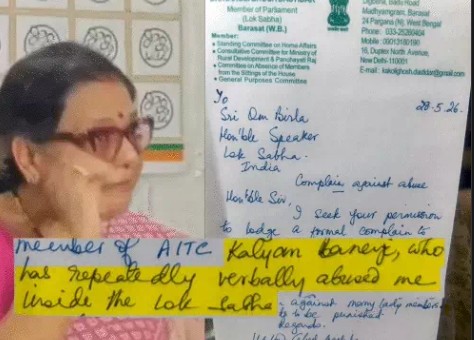 Member of Parliament
(Lok Sabha)
Barasat (W.B.)
Member:
• Standing Committee on Home Affairs
• Consultative Committee for Ministry of
Rural Development & Panchayati Raj
• Committee on Absence of Members
from the Sittings of the House
• General Purposes Committee
Madhyamgram, Barasat
24 Pargana (N), West Bengal
Phone: 033-25260404
Mobile: 09013180190
18, Duplex North Avenue,
New Delhi-110001
To
28.5.26.
Sri Om Birla
Hon'ble Speaker
Lok Sabha.
India
Complain against abuse
Hon'ble Sir,
I seek your permission
to lodge a formal complain to
member of AITC Kalyan Banerje, who
has repeatedly verbally abused me
inside the Lok Sabha
against many lady members
to be punished
Regards.